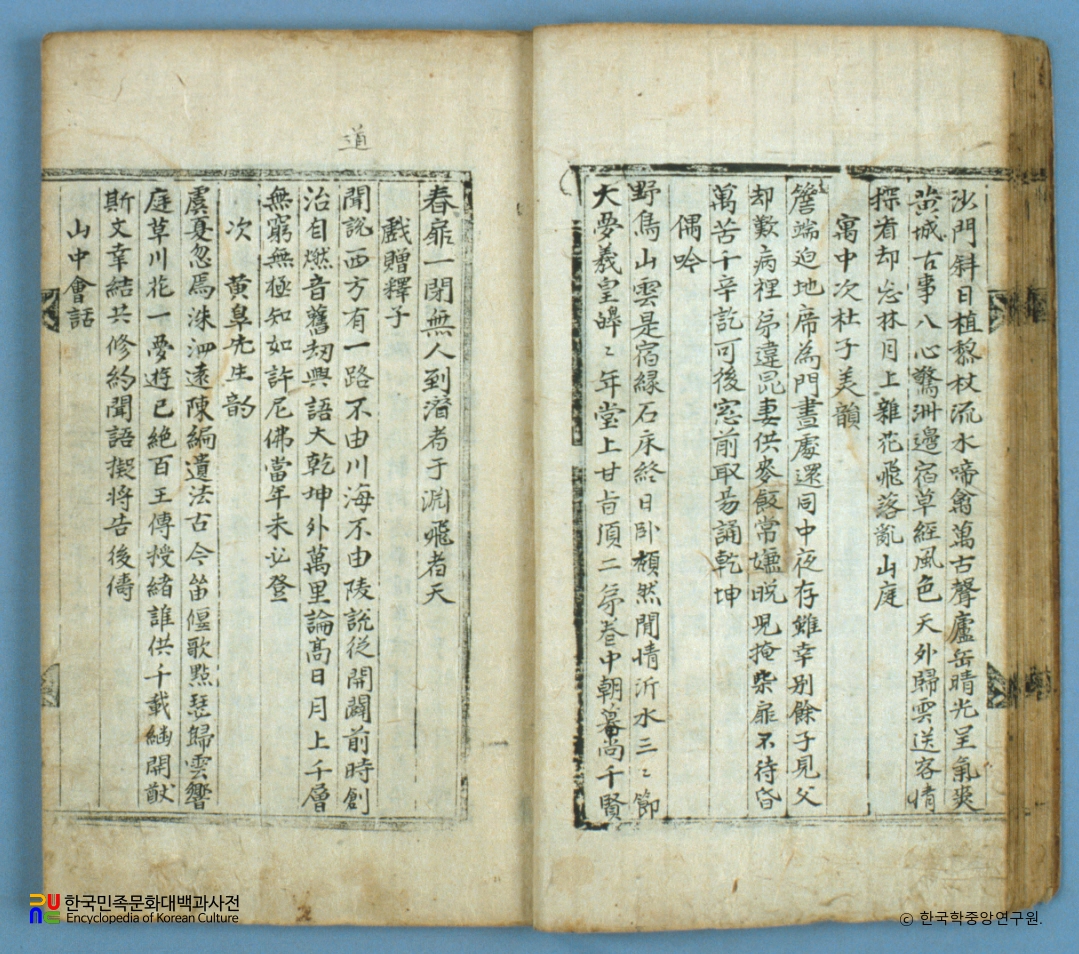 沙門斜日植藜杖流水啼禽萬古聲廬岳晴光呈氣爽
黃城古事八心驚洲邊宿草經風色天外歸雲送客情
探看却忘林月上雜花飛落亂山庭
寓中次杜子美韻
簷端迫地席為門晝處還同中夜存雖幸別餘子見父
却歎病裡為違昆妻供麥飯常嫌晩児掩柴扉不待昏
萬苦千辛訖可後窓前取易誦乾坤
偶吟
野鳥山雲是宿緣石床終日卧頹然閒情沂水三〻節
大夢羲皇皞〻年堂上甘旨須二
卷中朝暮尚千賢
春扉一閉無人到潛者于淵飛者天
道
戱贈釋子
聞說西方有一路不由川海不由陵說從開闢前時創
治自燃音舊刼興語大乾坤外萬里論高日月上千層
無窮無極知如許尼佛當年未必登
次 黃皐先生韵
虞夏忽焉洙泗遠陳編遺法古今笛偃歌點瑟歸雲響
庭草川花一夢遊已絶百王傳授緖誰供千載緬開猷
斯文幸結共修約聞語擬將告後儔
山中會話
한국민족문화대백과사전
Encyclopedia of Korean Culture
© 한국학중앙연구원.